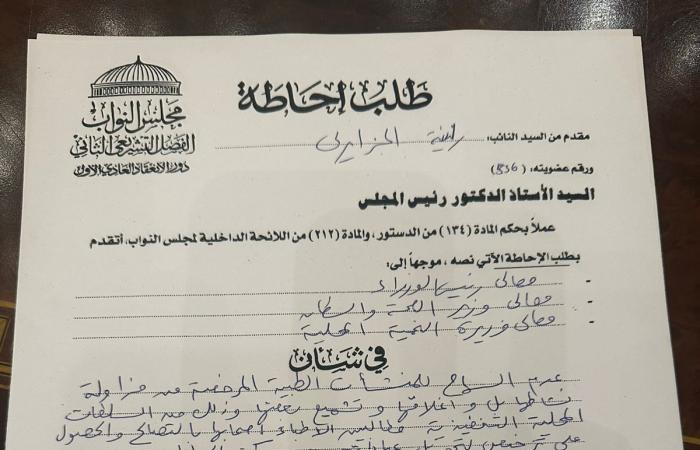 مجلس النواب
الفصل التشريعي الثاني
دور الانعقاد العادي الأول
طلب إحاطة
مقدم من السيد النائب: راوية الجزايرلى
ورقم عضويته: (556)
السيد الأستاذ الدكتور رئيس المجلس
عملاً بحكم المادة (١٣٤) من الدستور، والمادة (٢١٢) من اللائحة الداخلية لمجلس النواب، أتقدم
بطلب الإحاطة الآتي نصه، موجهاً إلى:
- معالى رئيس الوزراء
- معالى وزير الصحة والسكان
- معالى وزيرة التنمية المحلية
في شأن
عدم السماح للمنشآت الطبية المرخصة من مزاولة
نشاطها بل و اغلاقها و تشميع بعضها وذلك من السلطات
المحلية التنفيذية مطالبين الاطباء أصحابها بالتصالح والحصول
على ترخيص